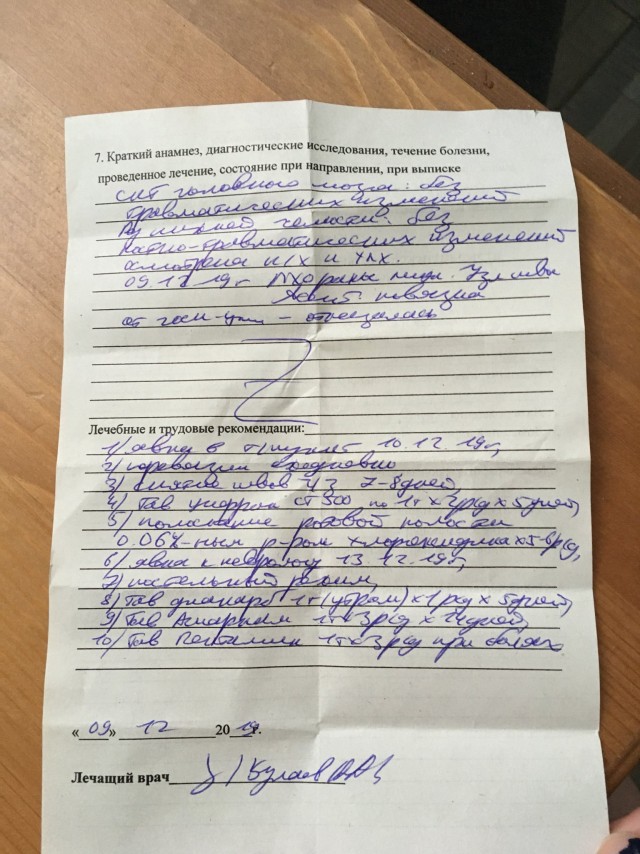 7. Краткий анамнез, диагностические исследования, течение болезни,
проведенное лечение, состояние при направлении, при выписке
СКТ головного мозга: без
травматических изменений
нижней челюсти: без
костно-травматических изменений
осмотрена н/х и члх.
09.12.19г ПХО раны лица. Уз. швы
Асепт. повязка
от госп-ции – отказалась
Лечебные и трудовые рекомендации:
1) явка в т/пункт 10.12.19г,
2) перевязки ежедневно
3) снятие швов ч/з 7-8дней
4) Таб цифран ст 500 по 1т х 2р/д х 5дней,
5) полоскание ротовой полости
0.06%-ным р-ром хлоргексидина х 5-6р/д,
6) явка к неврологу 13.12.19г,
7) постельный режим,
8) Таб диакарб 1т(утром) х 1р/д х 5дней,
9) Таб Аспаркам 1т х 3р/д х дней,
10) Таб Пенталгин 1т х 3р/д при болях.
«09» 12 2019г.
Лечащий врач